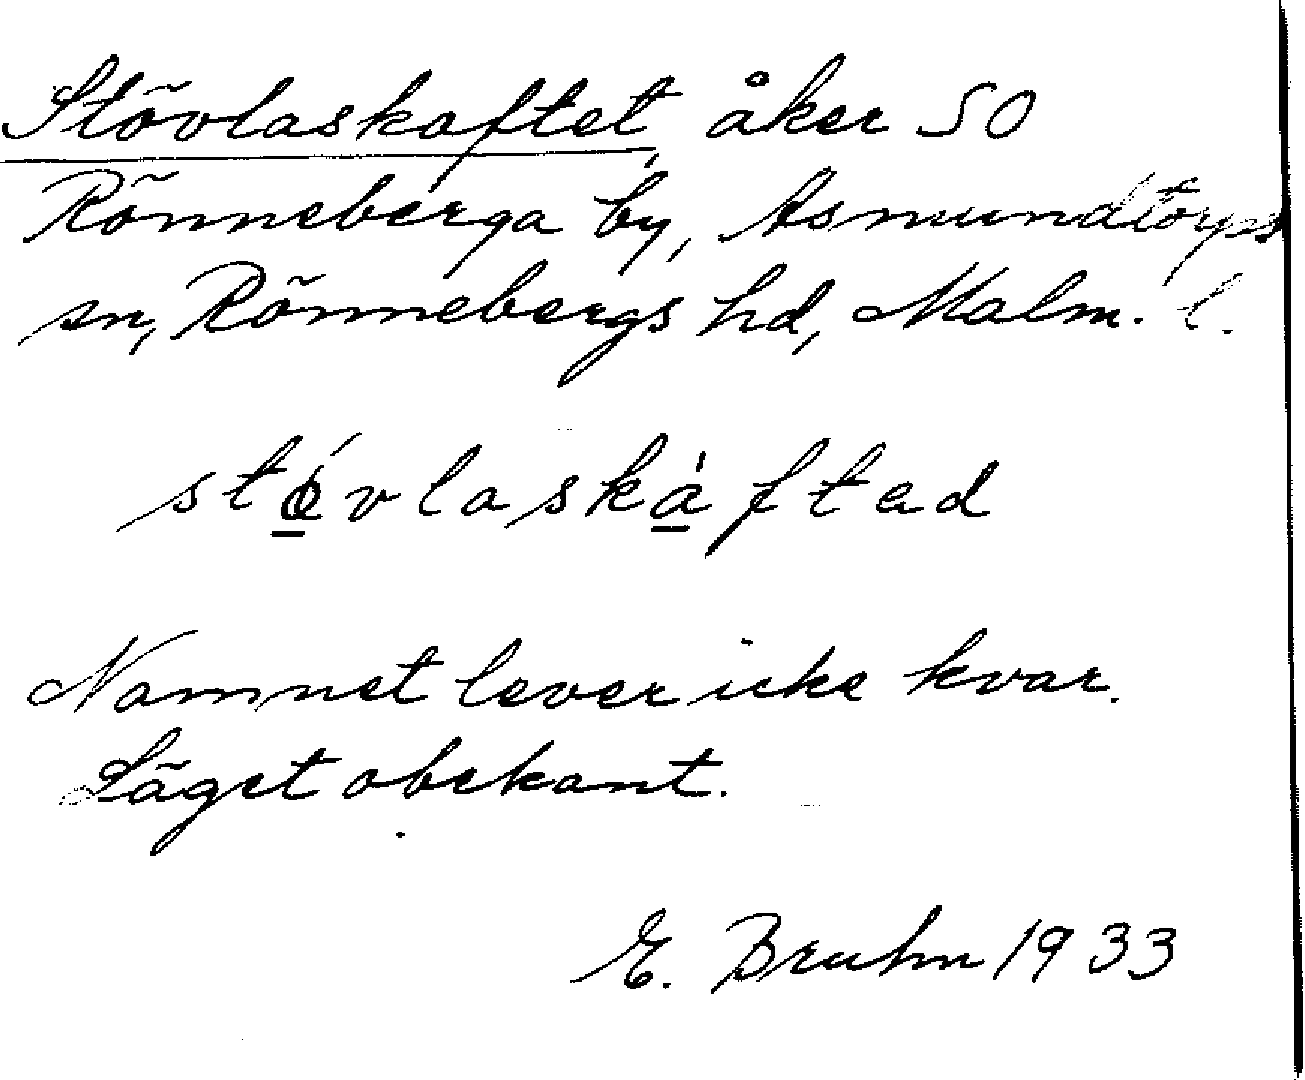 Stövlaskaftet, åker SO
Rönneberga by, Asmundtorps
sn, Rönnebergs hd, Malm. l.
stǿvlaskáftad
Namnet lever icke kvar.
Läget obekant.
E. Bruhn 1933